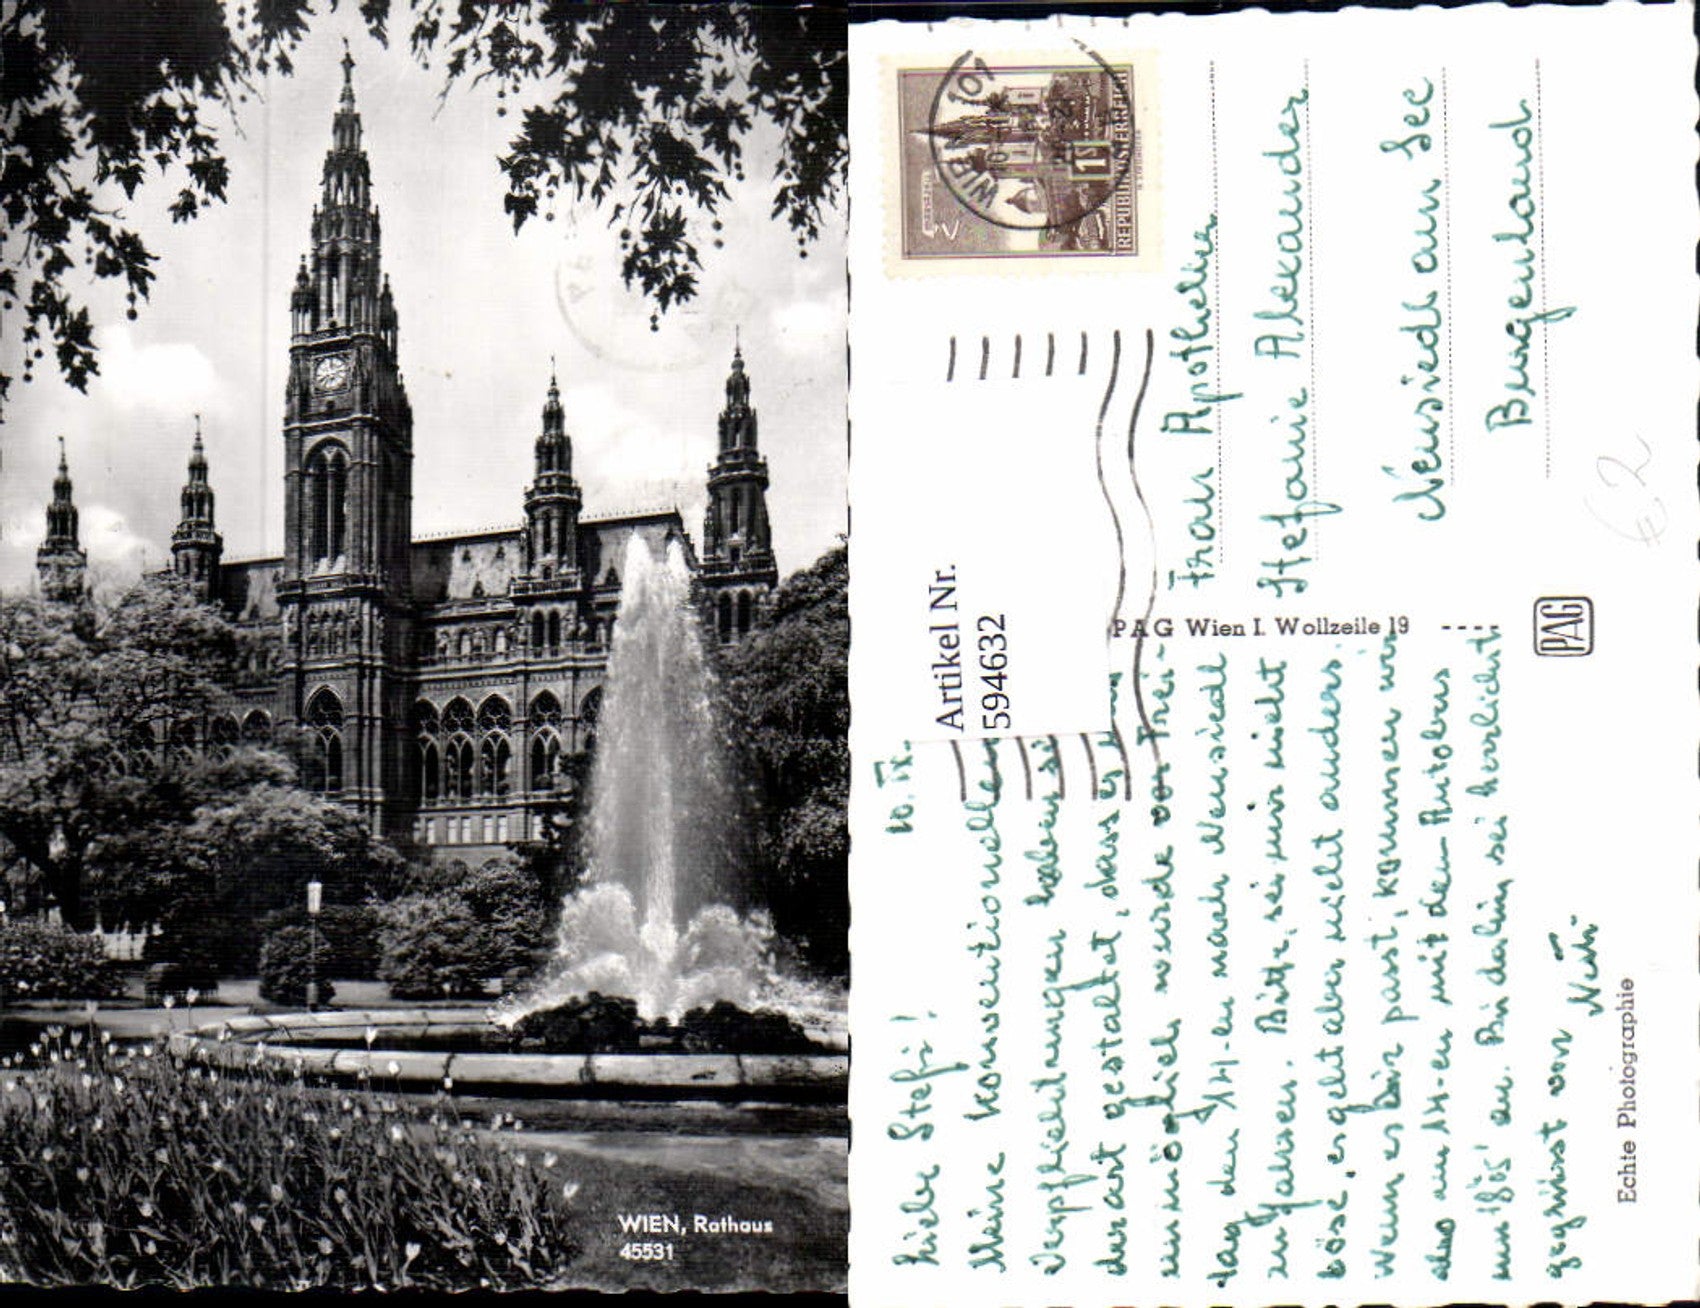 WIEN, Rathaus
45531
10. IX.
Liebe Stefi!
Meine konventionellen
Verpflichtungen haben si
derart gestaltet, dass es
unmöglich wurde von Frei-
tag den 14-en nach Neusiedl
zu fahren. Bitte, sei mir nicht
böse, es geht aber nicht anders.
Wenn es Dir passt, kommen wir
also am 14-en mit dem Autobus
um 18⁰⁵ an. Bis dahin sei herzlichst
gegrüsst von
Artikel Nr.
594632
WIEN 101
REPUBLIK ÖSTERREICH
1 S
PAG Wien I. Wollzeile 19
PAG
Echte Photographie
Frau Apotheker
Stefanie Alexander
Neusiedl am See
Burgenland
€2